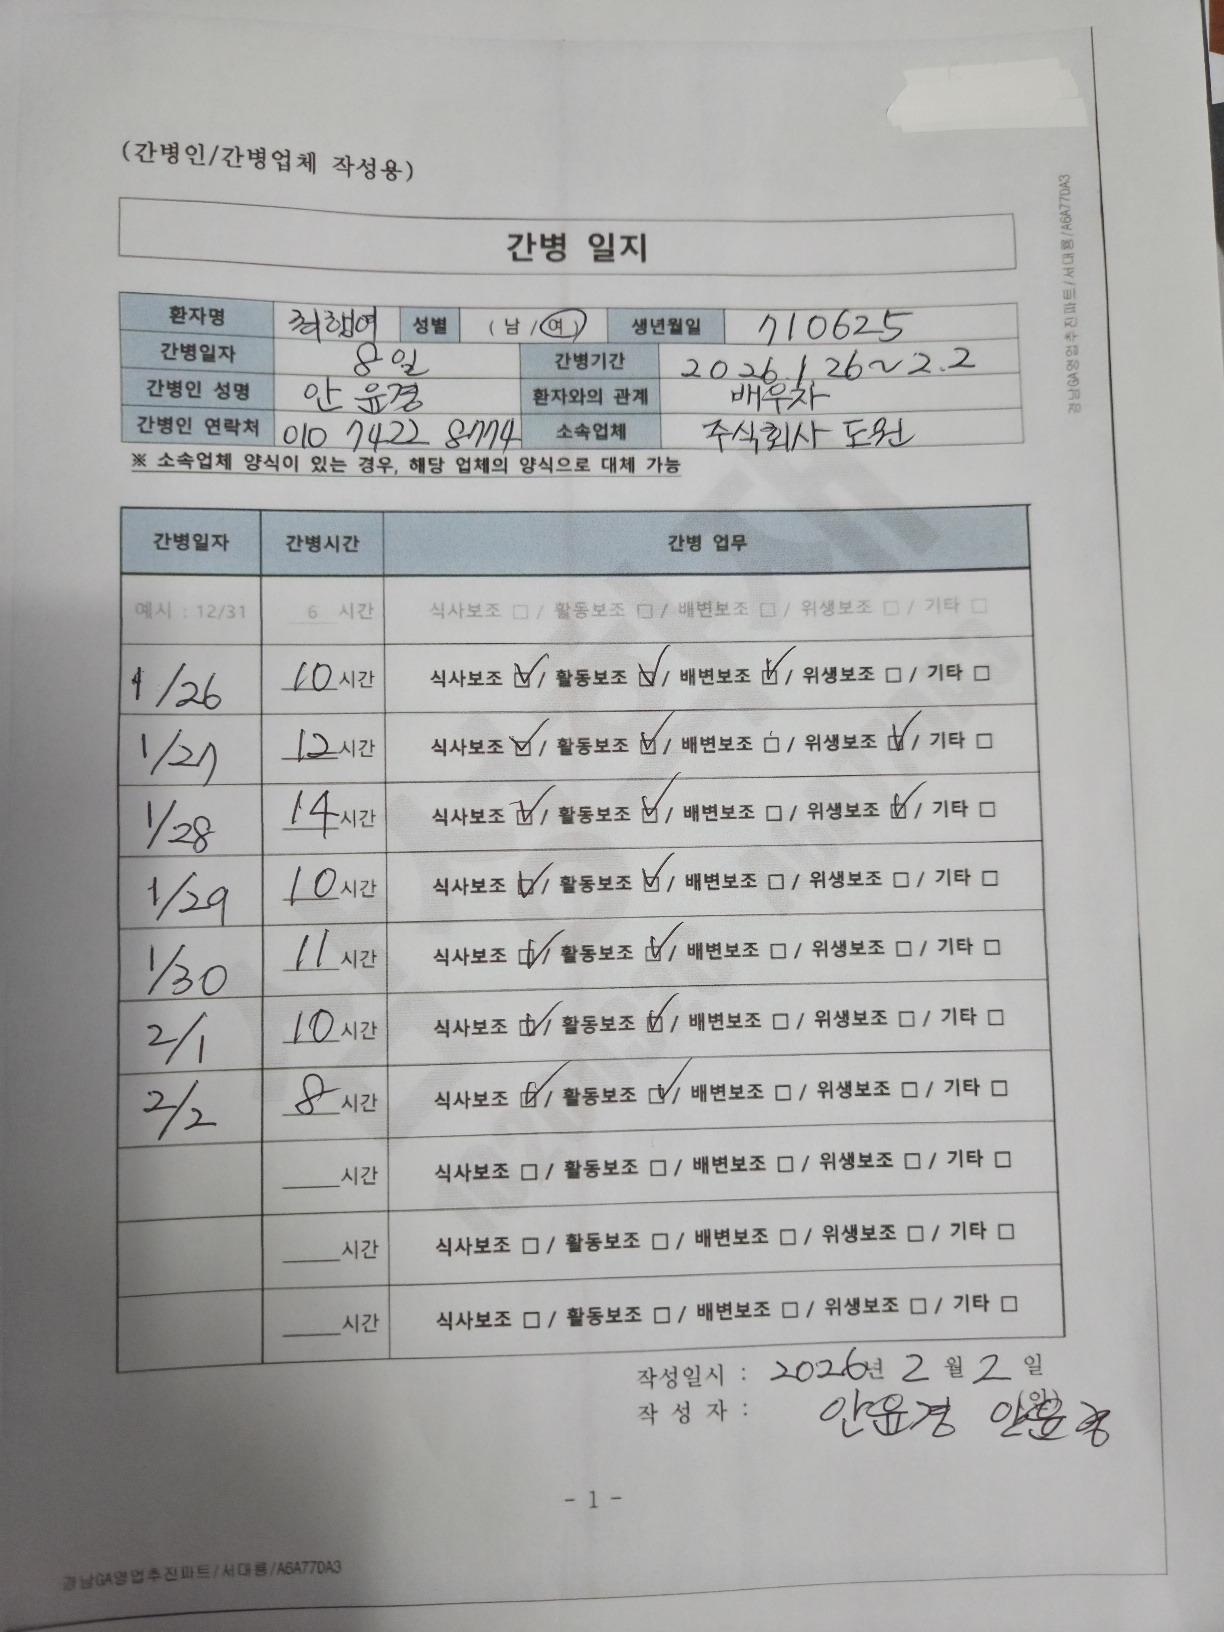 (간병인/간병업체 작성용)
경남GA영업추진파트/서대룡/A6A770A3
간병 일지
환자명 최햄여 성별 (남/여) 생년월일 710625
간병일자 8일 간병기간 2026.1.26~2.2
간병인 성명 안윤경 환자와의 관계 배우자
간병인 연락처 010 7422 8774 소속업체 주식회사 도원
※ 소속업체 양식이 있는 경우, 해당 업체의 양식으로 대체 가능
간병일자 간병시간 간병 업무
예시 : 12/31 6 시간 식사보조 □ / 활동보조 □ / 배변보조 □ / 위생보조 □ / 기타 □
1/26 10 시간 식사보조 ☑ / 활동보조 ☑ / 배변보조 ☑ / 위생보조 □ / 기타 □
1/27 12 시간 식사보조 ☑ / 활동보조 ☑ / 배변보조 □ / 위생보조 ☑ / 기타 □
1/28 14 시간 식사보조 ☑ / 활동보조 ☑ / 배변보조 □ / 위생보조 ☑ / 기타 □
1/29 10 시간 식사보조 ☑ / 활동보조 ☑ / 배변보조 □ / 위생보조 □ / 기타 □
1/30 11 시간 식사보조 ☑ / 활동보조 ☑ / 배변보조 □ / 위생보조 □ / 기타 □
2/1 10 시간 식사보조 ☑ / 활동보조 ☑ / 배변보조 □ / 위생보조 □ / 기타 □
2/2 8 시간 식사보조 ☑ / 활동보조 ☑ / 배변보조 □ / 위생보조 □ / 기타 □
시간 식사보조 □ / 활동보조 □ / 배변보조 □ / 위생보조 □ / 기타 □
시간 식사보조 □ / 활동보조 □ / 배변보조 □ / 위생보조 □ / 기타 □
시간 식사보조 □ / 활동보조 □ / 배변보조 □ / 위생보조 □ / 기타 □
작성일시 : 2026년 2월 2일
작 성 자 : 안윤경 안윤경 (인)
- 1 -
경남GA영업추진파트/서대룡/A6A770A3